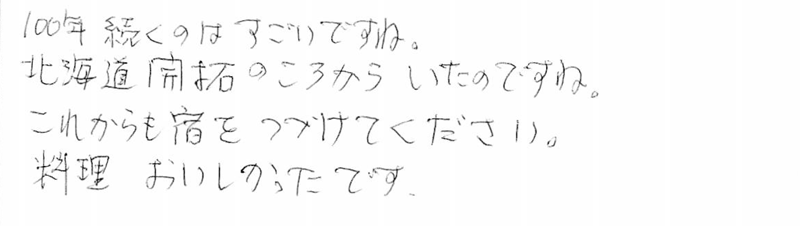 100年 続くのは すごいですね。
北海道 開拓のころから いたのですね。
これからも 宿を つづけてください。
料理 おいしかったです.